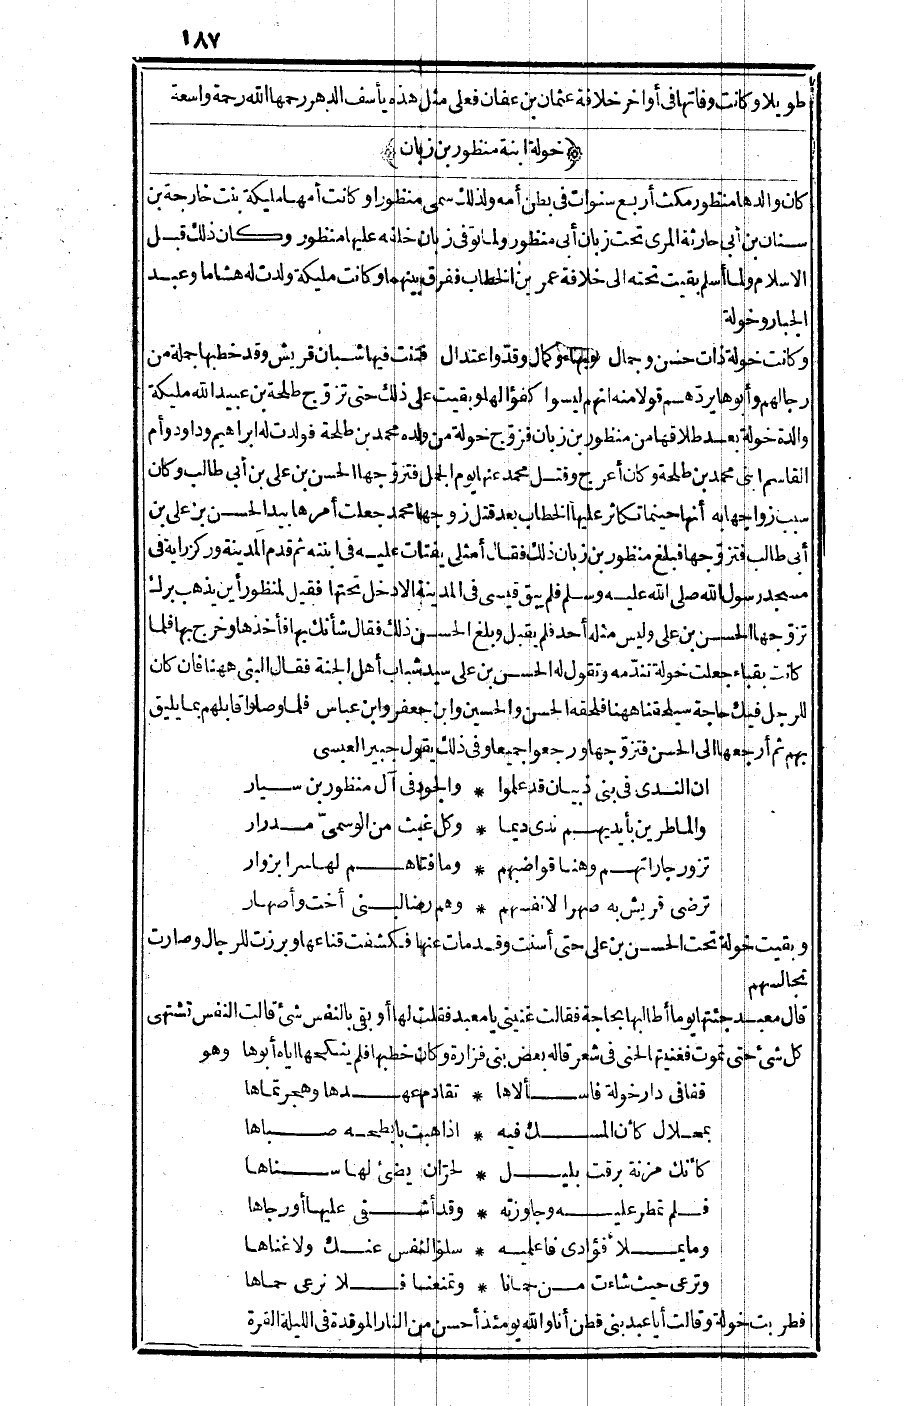 ١٨٧
طويلا وكانت وفاتها في أواخر خلافة عثمان بن عفان فعلى مثل هذه يأسف الدهر رحمها الله رحمة واسعة
﴿خولة ابنة منظور بن زبان﴾
كان والدها منظور مكث أربع سنوات في بطن أمه ولذلك سمى منظورا وكانت أمها مليكة بنت خارجة بن
سنان بن أبي حارثة المرى تحت زبان أبي منظور ولما توفى زبان خلفه عليها منظور وكان ذلك قبل
الاسلام ولما أسلم بقيت تحته الى خلافة عمر بن الخطاب ففرق بينهما وكانت مليكة ولدت له هشاما وعبد
الجبار وخولة
وكانت خولة ذات حسن وجمال وبهاء وكمال وقد واعتدال فتنت فيها شبان قريش وقد خطبها جملة من
رجالهم وأبوها يردهم قولا منه انهم ليسوا كفؤا لها وبقيت على ذلك حتى تزوج طلحة بن عبيد الله مليكة
والدة خولة بعد طلاقها من منظور بن زبان فزوج خولة من ولده محمد بن طلحة فولدت له ابراهيم وداود وأم
القاسم ابنى محمد بن طلحة وكان أعرج وقتل محمد عنها يوم الجمل فتزوجها الحسن بن على بن أبي طالب وكان
سبب زواجها به أنها حينما تكاثر عليها الخطاب بعد قتل زوجها محمد جعلت أمرها بيد الحسن بن على بن
أبي طالب فتزوجها فبلغ منظور بن زبان ذلك فقال أمثلى يفتات عليه في ابنته ثم قدم المدينة وركز راية في
مسجد رسول الله صلى الله عليه وسلم فلم يبق قيسى في المدينة الا دخل تحتها فقيل لمنظور أين يذهب بك
تزوجها الحسن بن على وليس مثله أحد فلم يقبل وبلغ الحسن ذلك فقال شأنك بها فأخذها وخرج بها فلما
كانت بقباء جعلت خولة تندمه وتقول له الحسن بن على سيد شباب أهل الجنة فقال البثى ههنا فان كان
للرجل فيك حاجة سيلحقنا ههنا فلحقه الحسن والحسين وابن جعفر وابن عباس فلما وصلوا قابلهم بما يليق
بهم ثم أرجعها الى الحسن فتزوجها ورجعوا جميعا وفي ذلك يقول جبير العبسى
ان الندى في بنى ذبيان قد علموا * والجود في آل منظور بن سيار
والماطرين بأيديهم ندى ديما * وكل غيث من الوسمى مدرار
تزور جاراتهم وهنا قواضبهم * وما فتاهم لها سرا بزوار
ترضى قريش به صهرا لانفسهم * وهم رضا لبنى أخت وأصهار
وبقيت خولة تحت الحسن بن على حتى أسنت وقد مات عنها فكشفت قناعها وبرزت للرجال وصارت
تجالسهم
قال معبد جئتها يوما أطالبها بحاجة فقالت غننى يا معبد فقلت لها أو بقى بالنفس شئ قالت النفس تشتهى
كل شئ حتى تموت فغنيتها لحنى في شعر قاله بعض بنى فزارة وكان خطبها فلم ينكحها اياه أبوها وهو
قفا في دار خولة فاسألاها * تقادم عهدها وهجرتماها
بمحلال كأن المسك فيه * اذا هبت بأبطحه صباها
كأنك مزنة برقت بليل * لحران يضئ لها سناها
فلم تمطر عليه وجاوزته * وقد أشفى عليها أو رجاها
وما يملا فؤادى فاعلميه * سلو النفس عنك ولا غناها
وترعى حيث شاءت من حمانا * وتمنعنا فلا نرعى حماها
فطربت خولة وقالت أيا عبد بنى قطن أنا والله يومئذ أحسن من النار الموقدة في الليلة القرة